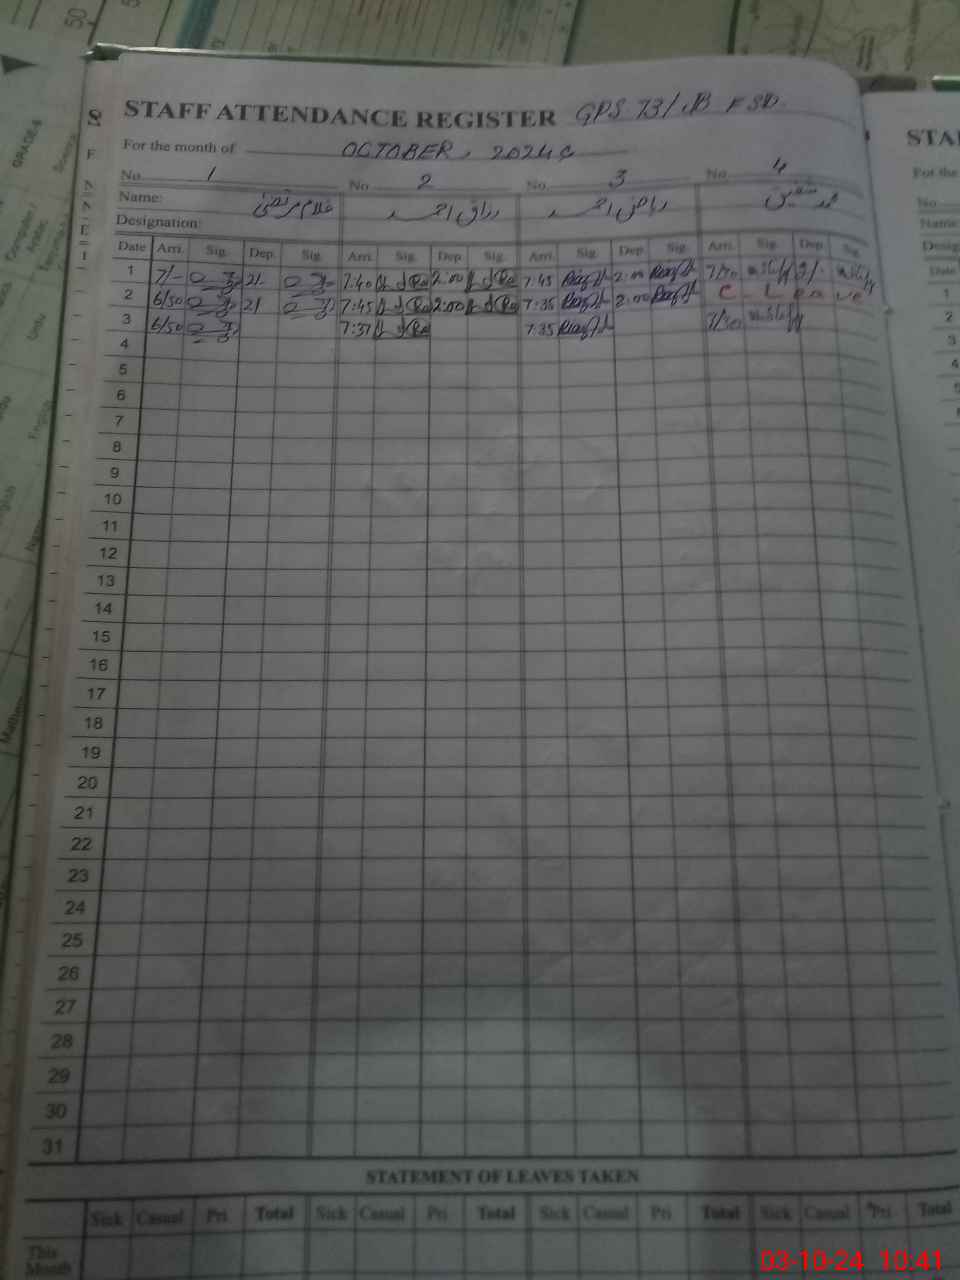 STAFF ATTENDANCE REGISTER GPS 73/JB FSD.
For the month of OCTOBER, 2024
No. 1 No. 2 No. 3 No. 4
Name: غلام مرتضیٰ رزاق احمد ریاض احمد
Designation:
Date Arri. Sig. Dep. Sig. Arri. Sig. Dep. Sig. Arri. Sig. Dep. Sig. Arri. Sig. Dep. Sig.
1 7/- 2/- 7:40 2:00 7:45 2:00 7/30 2/-
2 6/50 2/ 7:45 2:00 7:35 2:00 C-Leave
3 6/50 7:37 7:35 7/30
4
5
6
7
8
9
10
11
12
13
14
15
16
17
18
19
20
21
22
23
24
25
26
27
28
29
30
31
STATEMENT OF LEAVES TAKEN
Sick Casual Pri. Total Sick Casual Pri. Total Sick Casual Pri. Total Sick Casual Pri. Total
This Month
STA
For the
No.
Name:
Desig
Date
1
2
3
4
5
GRADE-6
Science
Computer /
Arabic
Urdu
English
50
03-10-24 10:41